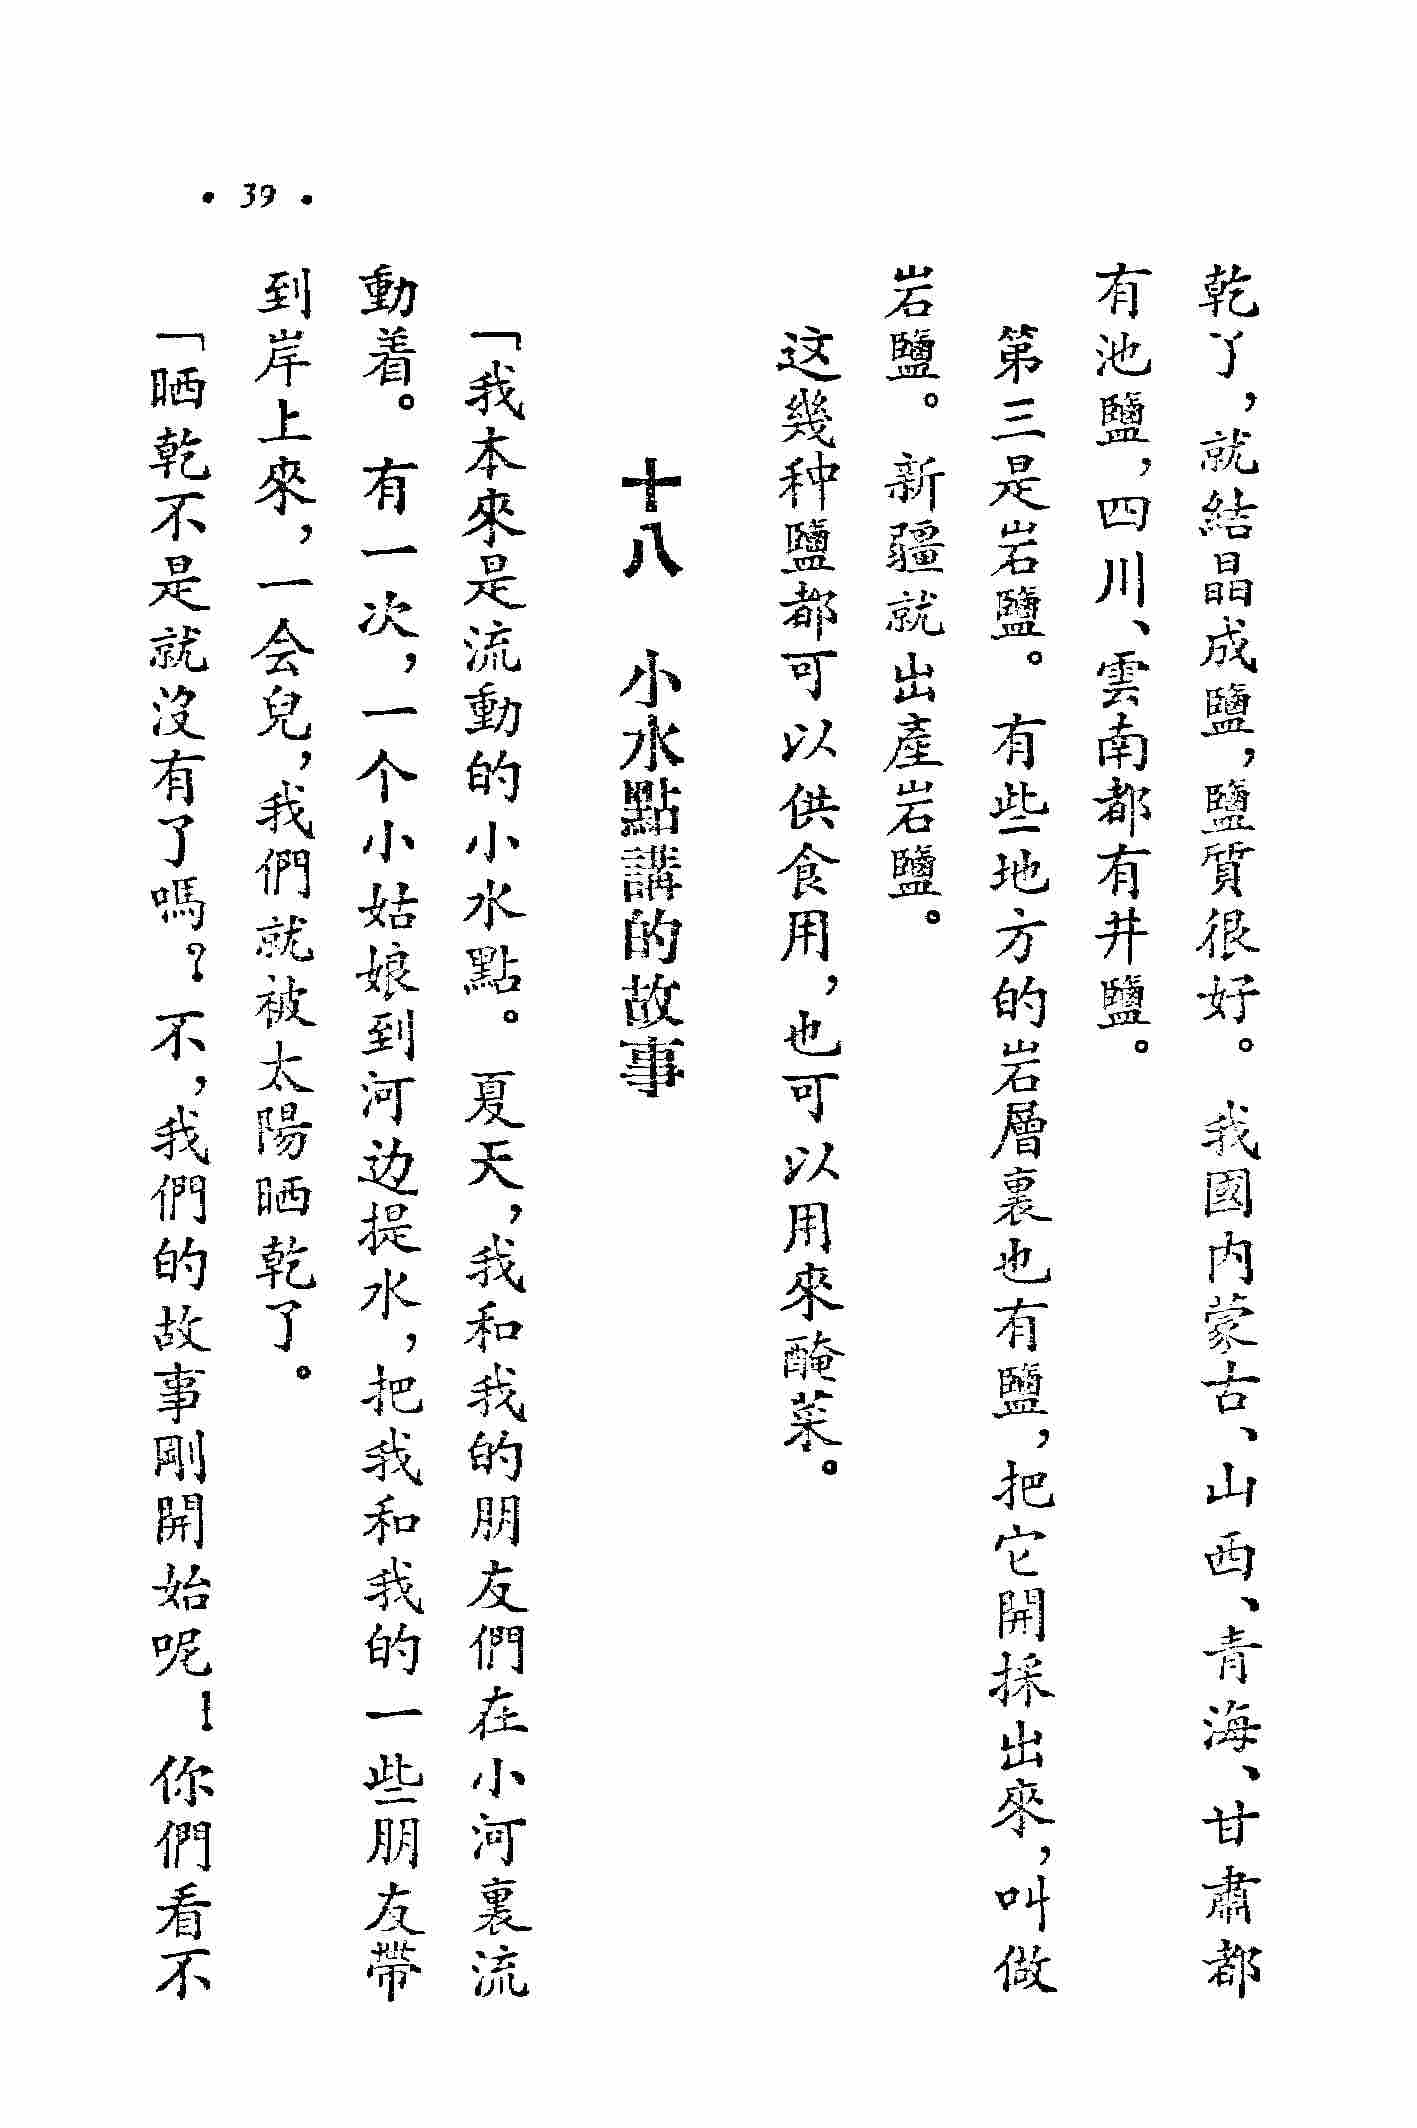 乾了，就結晶成鹽，鹽質很好。我國内蒙古、山西、青海、甘肅都
有池鹽，四川、雲南都有井鹽。
第三是岩鹽。有些地方的岩層裏也有鹽，把它開採出來，叫做
岩鹽。新疆就出產岩鹽。
这幾种鹽都可以供食用，也可以用來醃菜。
十八　小水點講的故事
「我本來是流動的小水點。夏天，我和我的朋友們在小河裏流
動着。有一次，一个小姑娘到河边提水，把我和我的一些朋友帶
到岸上來，一会兒，我們就被太陽晒乾了。
「晒乾不是就沒有了嗎？不，我們的故事剛開始呢！你們看不
• 39 •